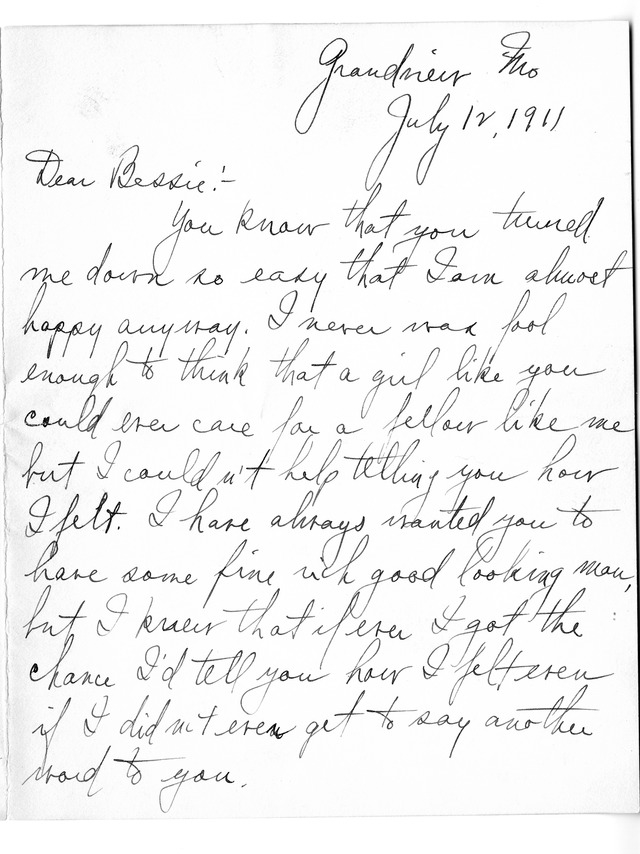 Grandview Mo
July 12, 1911
Dear Bessie:-
You know that you turned
me down so easy that I am almost
happy anyway. I never was fool
enough to think that a girl like you
could ever care for a fellow like me
but I couldn't help telling you how
I felt. I have always wanted you to
have some fine rich good looking man,
but I knew that if ever I got the
chance I'd tell you how I felt even
if I didn't even get to say another
word to you.